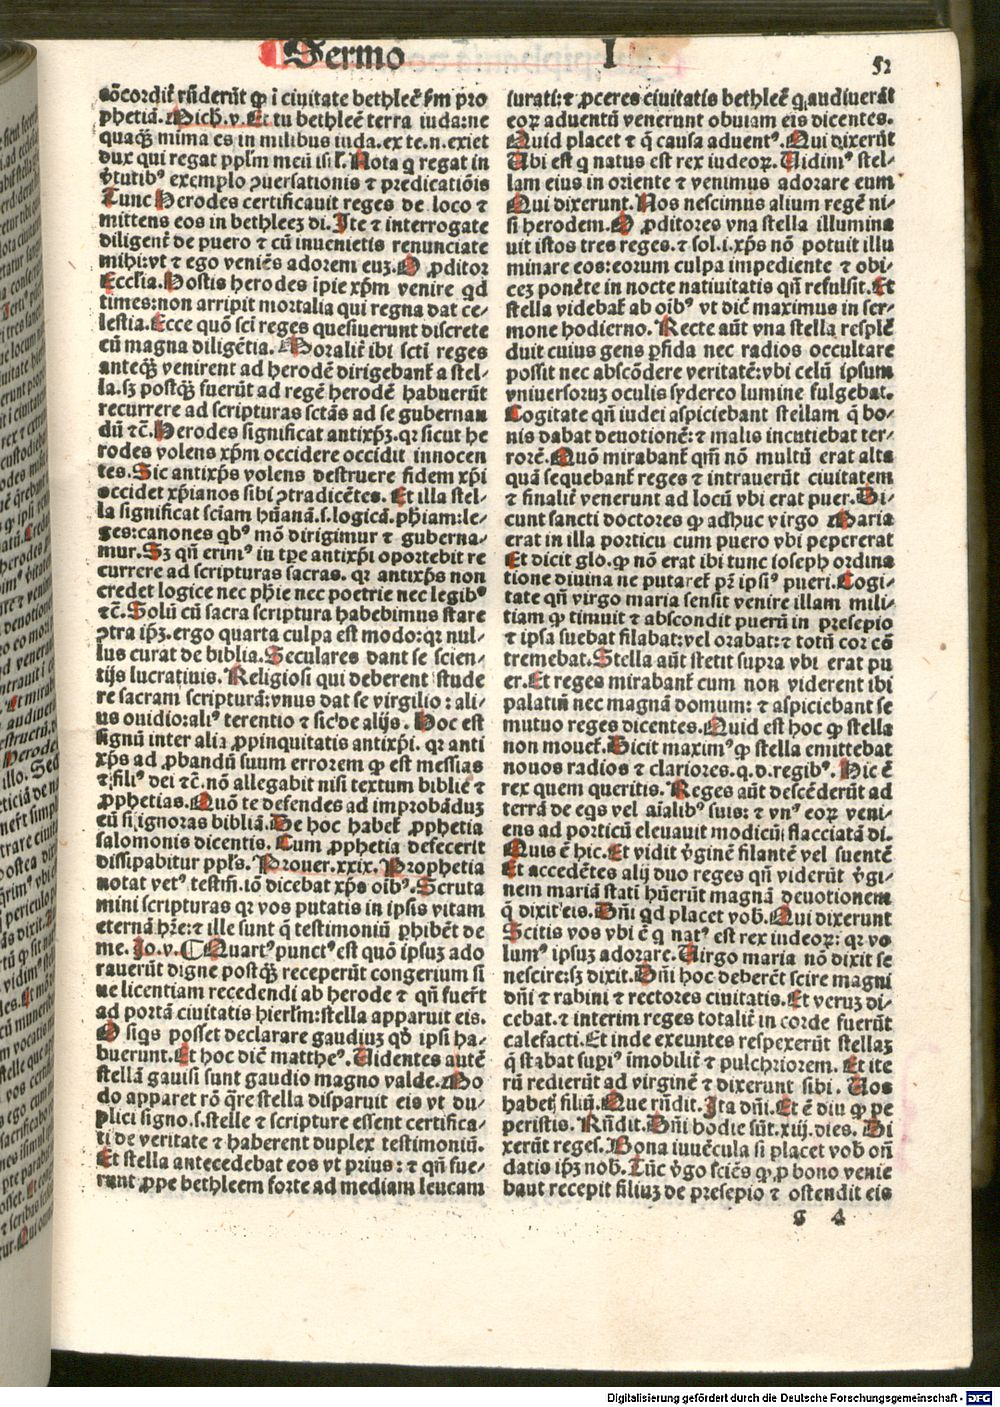 Sermo I
52
cõcordit᷑ rñderũt ꝙ i ciuitate bethleē ẜm pro
phetiã. Mich. v. Et tu bethleē terra iuda: ne
quaq̃ mima es in milibus iuda. ex te. n. exiet
dux qui regat pplm̃ meũ isrl̃. Nota q̱ regat in
v̓tutibꝰ exemplo ꝯuersationis ⁊ predicatiõis
Tunc Herodes certificauit reges de loco ⁊
mittens eos in bethleeꝫ di. Ite ⁊ interrogate
diligent᷑ de puero ⁊ cũ inuenietis renunciate
mihi: vt ⁊ ego veniẽs adorem euꝫ. O ꝓditor
Eccl̃ia. Hostis herodes ipie xp̃m venire qd
times: non arripit mortalia qui regna dat ce⸗
lestia. Ecce quõ sci reges quesiuerunt discrete
cũ magna diligẽtia. Moralit᷑ ibi scti reges
anteq̃ venirent ad herodẽ dirigebant᷑ a stel⸗
la. sꝫ postq̃ fuerũt ad regẽ herodẽ habuerũt
recurrere ad scripturas sctãs ad se gubernan
dũ ⁊c̃. Herodes significat antixp̃ꝫ. qꝛ sicut he
rodes volens xp̃m occidere occidit innocen
tes. Sic antixp̃s volens destruere fidem xp̃i
occidet xp̃ianos sibi ꝯtradicẽtes. Et illa stel⸗
la significat sciam hũanã. s. logicã. ph̃iam: le⸗
ges: canones qbꝰ mõ dirigimur ⁊ guberna⸗
mur. Sꝫ qñ erimꝰ in tp̃e antixp̃i oportebit re
currere ad scripturas sacras. qꝛ antixp̃s non
credet logice nec ph̃ie nec poetrie nec legibꝰ
⁊c̃. Solũ cũ sacra scriptura habebimus stare
ꝯtra ip̃ꝫ. ergo quarta culpa est modo: qꝛ nul⸗
lus curat de biblia. Seculares dant se scien⸗
tijs lucratiuis. Religiosi qui deberent stude
re sacram scripturã: vnus dat se virgilio: ali⸗
us ouidio: aliꝰ terentio ⁊ sic de alijs. Hoc est
signũ inter alia ꝓpinquitatis antixp̃i. qꝛ anti
xp̃s ad ꝓbandũ suum errorem ꝙ est messias
⁊ filiꝰ dei ⁊c̃. nõ allegabit nisi textum biblie ⁊
ꝓphetias. Quõ te defendes ad improbãduꝫ
eũ si ignoras bibliã. De hoc habet᷑ ꝓphetia
salomonis dicentis. Cum ꝓphetia defecerit
dissipabitur ppl̃s. Prouer. xxix. Prophetia
notat vetꝰ testm̃. iõ dicebat xp̃s oibꝰ. Scruta
mini scripturas qꝛ vos putatis in ipsis vitam
eternã hr̃e: ⁊ ille sunt q̃ testimoniũ ꝑhibẽt de
me. Io. v. ¶ Quartꝰ punctꝰ est quõ ipsuꝫ ado
rauerũt digne postq̃ receperũt congerium si
ue licentiam recedendi ab herode ⁊ qñ fuer̃t
ad portã ciuitatis hierl̃m: stella apparuit eis.
O siqs posset declarare gaudiuꝫ qð ipsi ha⸗
buerunt. Et hoc dic̃ mattheꝰ. Uidentes autẽ
stellã gauisi sunt gaudio magno valde. Mo
do apparet rõ q̃re stella disparuit eis vt du⸗
plici signo. s. stelle ⁊ scripture essent certifica⸗
ti de veritate ⁊ haberent duplex testimoniũ.
Et stella antecedebat eos vt prius: ⁊ qñ fue⸗
runt ꝓpe bethleem forte ad mediam leucam
iurati: ⁊ ꝓceres ciuitatis bethleẽ q̱ audiuerãt
eoꝝ aduentũ venerunt obuiam eis dicentes.
Quid placet ⁊ q̃ causa aduentꝰ. Qui dixerũt
Ubi est q̱ natus est rex iudeoꝝ. Uidimꝰ stel⸗
lam eius in oriente ⁊ venimus adorare eum
Qui dixerunt. Nos nescimus alium regẽ ni⸗
si herodem. O ꝓditores vna stella illumina
uit istos tres reges. ⁊ sol. i. xp̃s nõ potuit illu
minare eos: eorum culpa impediente ⁊ obi⸗
cẽꝫ ponẽte in nocte natiuitatis qñ refulsit. Et
stella videbat᷑ ab oibꝰ vt dic̃t maximus in ser⸗
mone hodierno. Recte aũt vna stella resplẽ
duit cuius gens ꝑfida nec radios occultare
possit nec abscõdere veritatẽ: vbi celũ ipsum
vniuersoruꝫ oculis syderco lumine fulgebat.
Cogitate qñ iudei aspiciebant stellam q̃ bo⸗
nis dabat deuotionẽ: ⁊ malis incutiebat ter⸗
rorẽ. Quõ mirabant᷑ qm̃ nõ multũ erat alta
quã sequebant᷑ reges ⁊ intrauerũt ciuitatem
⁊ finalit᷑ venerunt ad locũ vbi erat puer. Di⸗
cunt sancti doctores ꝙ adhuc virgo Maria
erat in illa porticu cum puero vbi pepererat
Et dicit glo. ꝙ nõ erat ibi tunc ioseph ordina
tione diuina ne putaret᷑ pr̃ ipsiꝰ pueri. Cogi⸗
tate qñ virgo maria sensit venire illam mili⸗
tiam ꝙ timuit ⁊ abscondit puerũ in presepio
⁊ ipsa suebat filabat: vel orabat: ⁊ totũ cor cõ
tremebat. Stella aũt stetit supra vbi erat pu
er. Et reges mirabant᷑ cum non viderent ibi
palatiũ nec magnã domum: ⁊ aspiciebant se
mutuo reges dicentes. Quid est hoc ꝙ stella
non mouet᷑. Dicit maximꝰ ꝙ stella emittebat
nouos radios ⁊ clariores. q. d. regibꝰ. Hic ẽ
rex quem queritis. Reges aũt descẽderũt ad
terrã de eqs vel aialibꝰ suis: ⁊ vnꝰ eoꝝ veni⸗
ens ad porticũ eleuauit modicũ flacciatã di.
Quis ẽ hic. Et vidit v̓ginẽ filantẽ vel suentẽ
Et accedẽtes alij duo reges qñ viderũt v̓gi⸗
nem mariã stati hũerũt magnã deuotionem
q̃ dixit eis. Dñi qd placet vob. Qui dixerunt
Scitis vos vbi ẽ q̱ natꝰ est rex iudeoꝝ: qꝛ vo
lumꝰ ipsuꝫ adorare. Uirgo maria nõ dixit se
nescire: sꝫ dixit. Dñi hoc deberẽt scire magni
dñi ⁊ rabini ⁊ rectores ciuitatis. Et veruꝫ di⸗
cebat. ⁊ interim reges totalit᷑ in corde fuerũt
calefacti. Et inde exeuntes respexerũt stellaꝫ
q̃ stabat supiꝰ imobilit᷑ ⁊ pulchriorem. Et ite
rũ redierũt ad virginẽ ⁊ dixerunt sibi. Uos
habetꝭ filiũ. Que rñdit. Ita dñi. Et ẽ diu ꝙ pe
peristis. Rñdit. Dñi hodie sũt. xiij. dies. Di
xerũt reges. Bona iuuẽcula si placet vob oñ
datis ip̃ꝫ nob. Tũc v̓go sciẽs ꝙ ꝓ bono venie
bant recepit filiuꝫ de presepio ⁊ ostendit eis
g 4
Digitalisierung gefördert durch die Deutsche Forschungsgemeinschaft - DFG